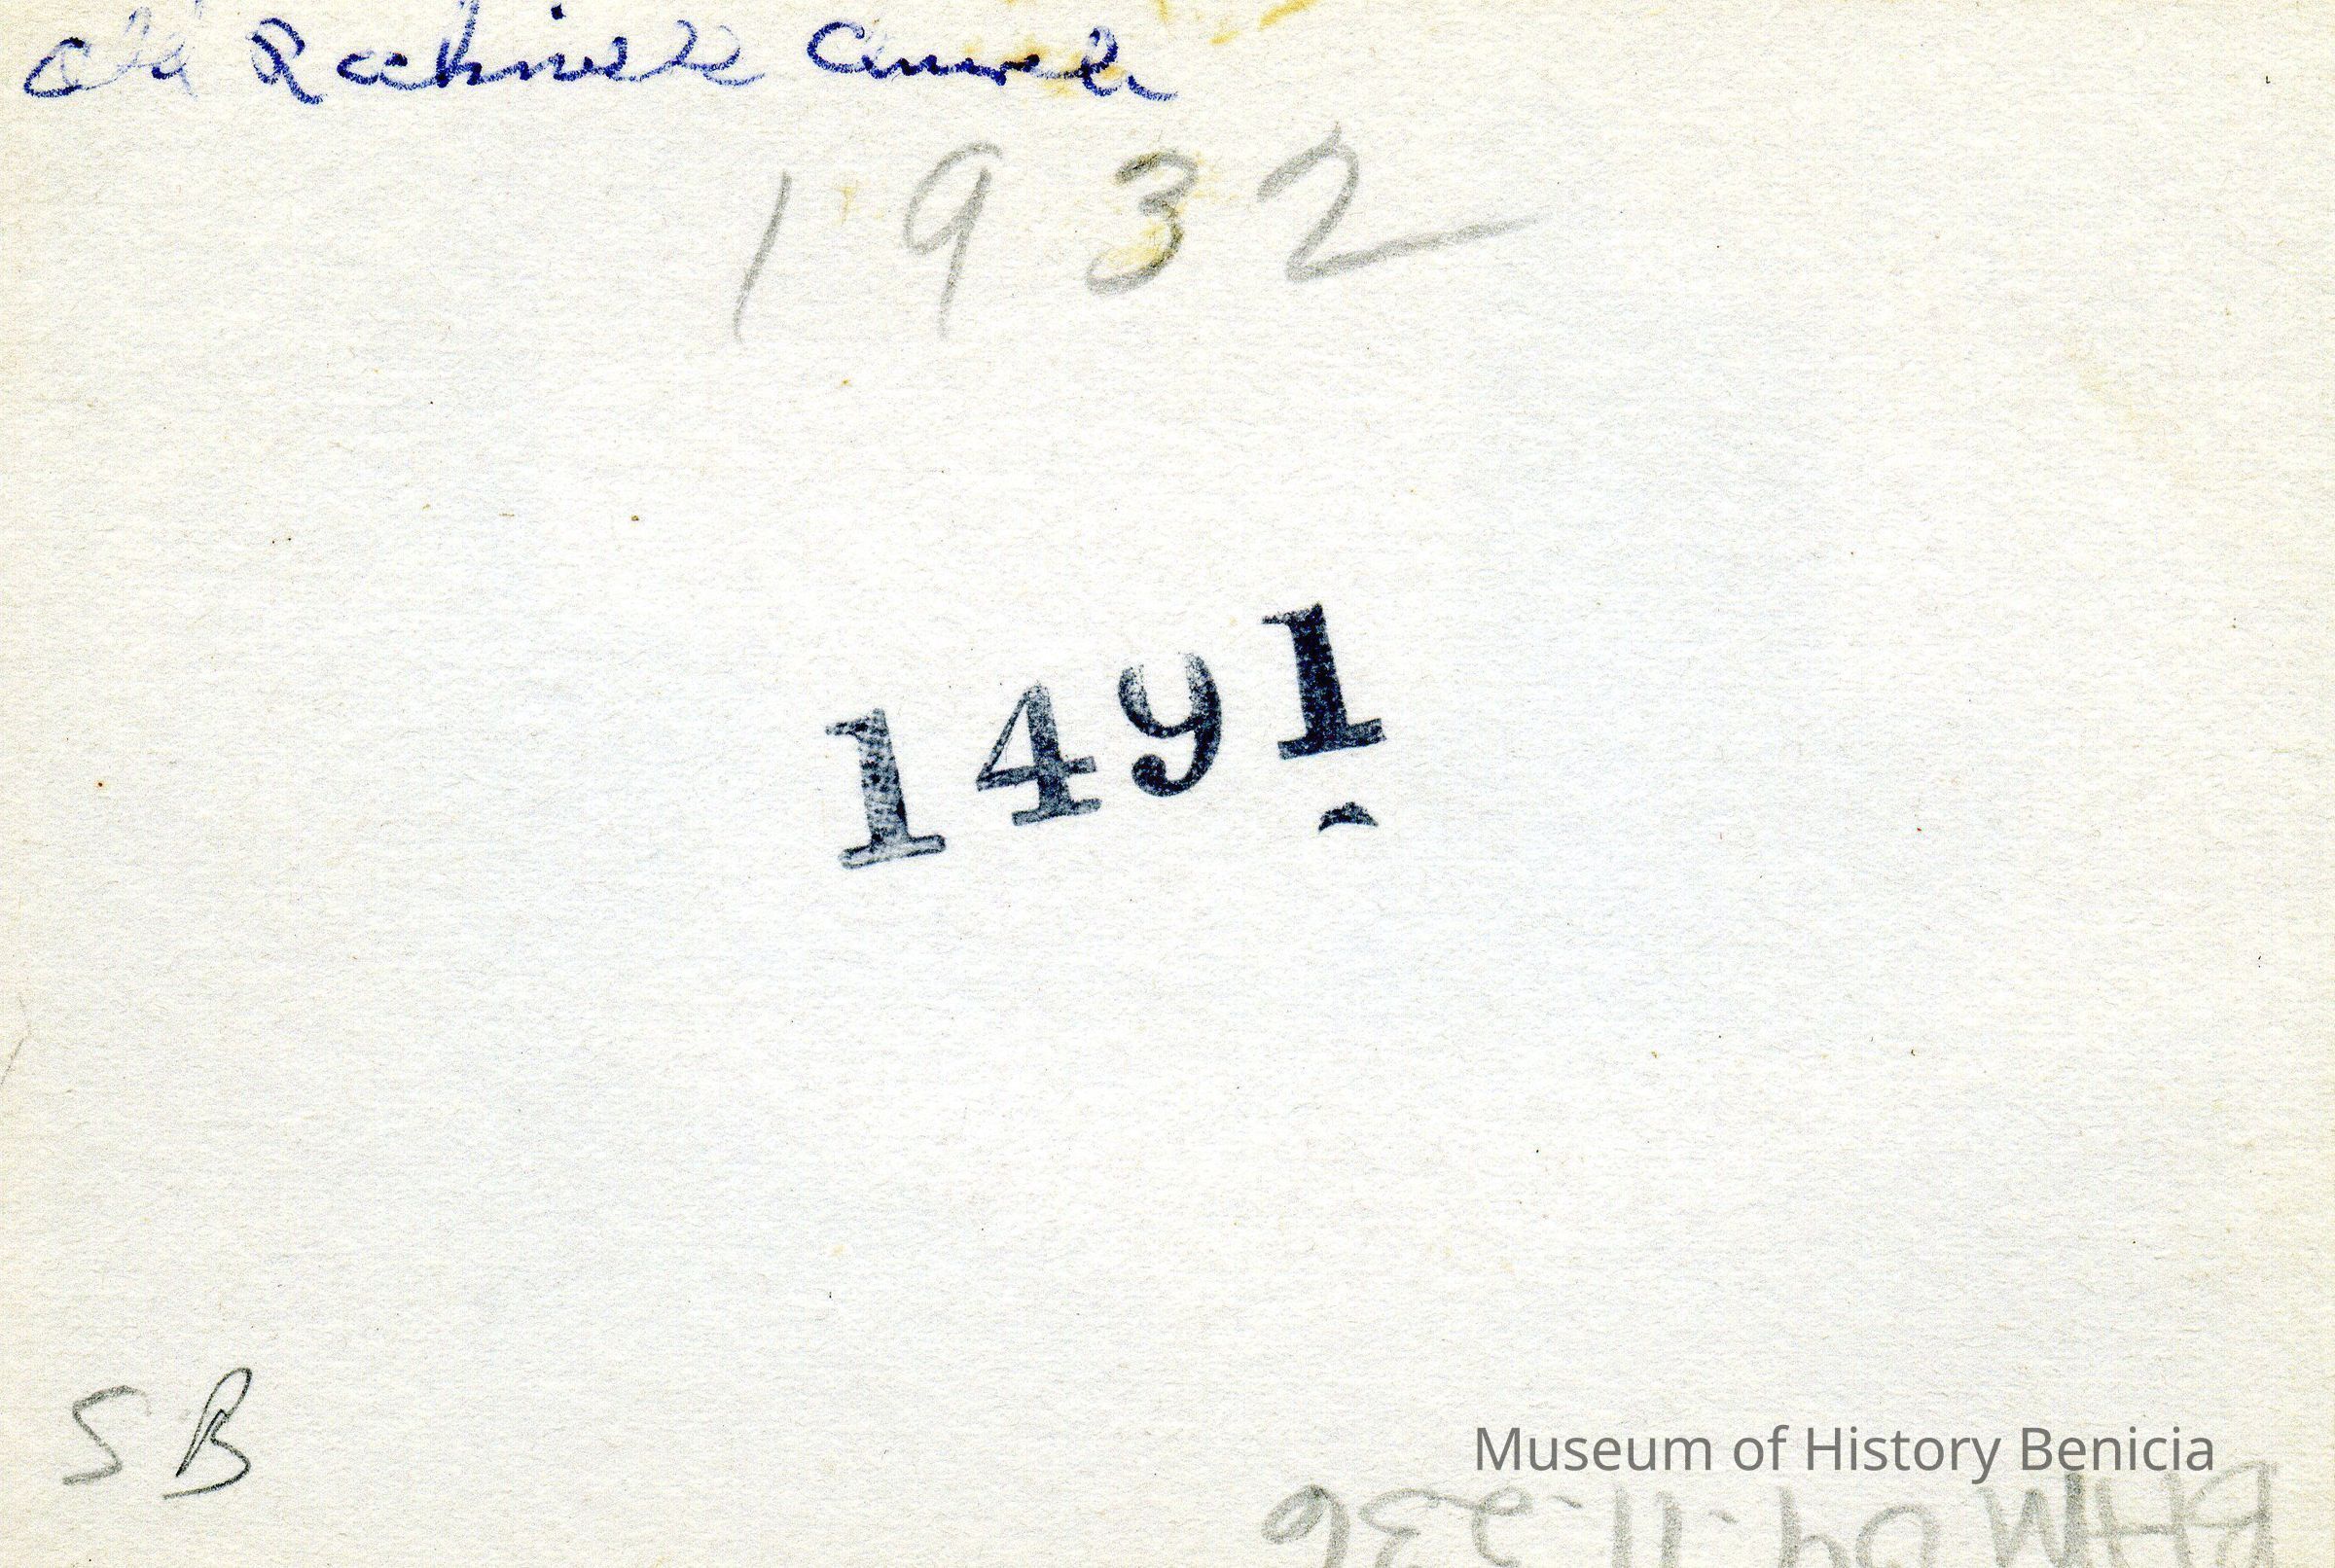 Old Catholic Church
1932
1491
SB
Museum of History Benicia
BHM 04-11-236